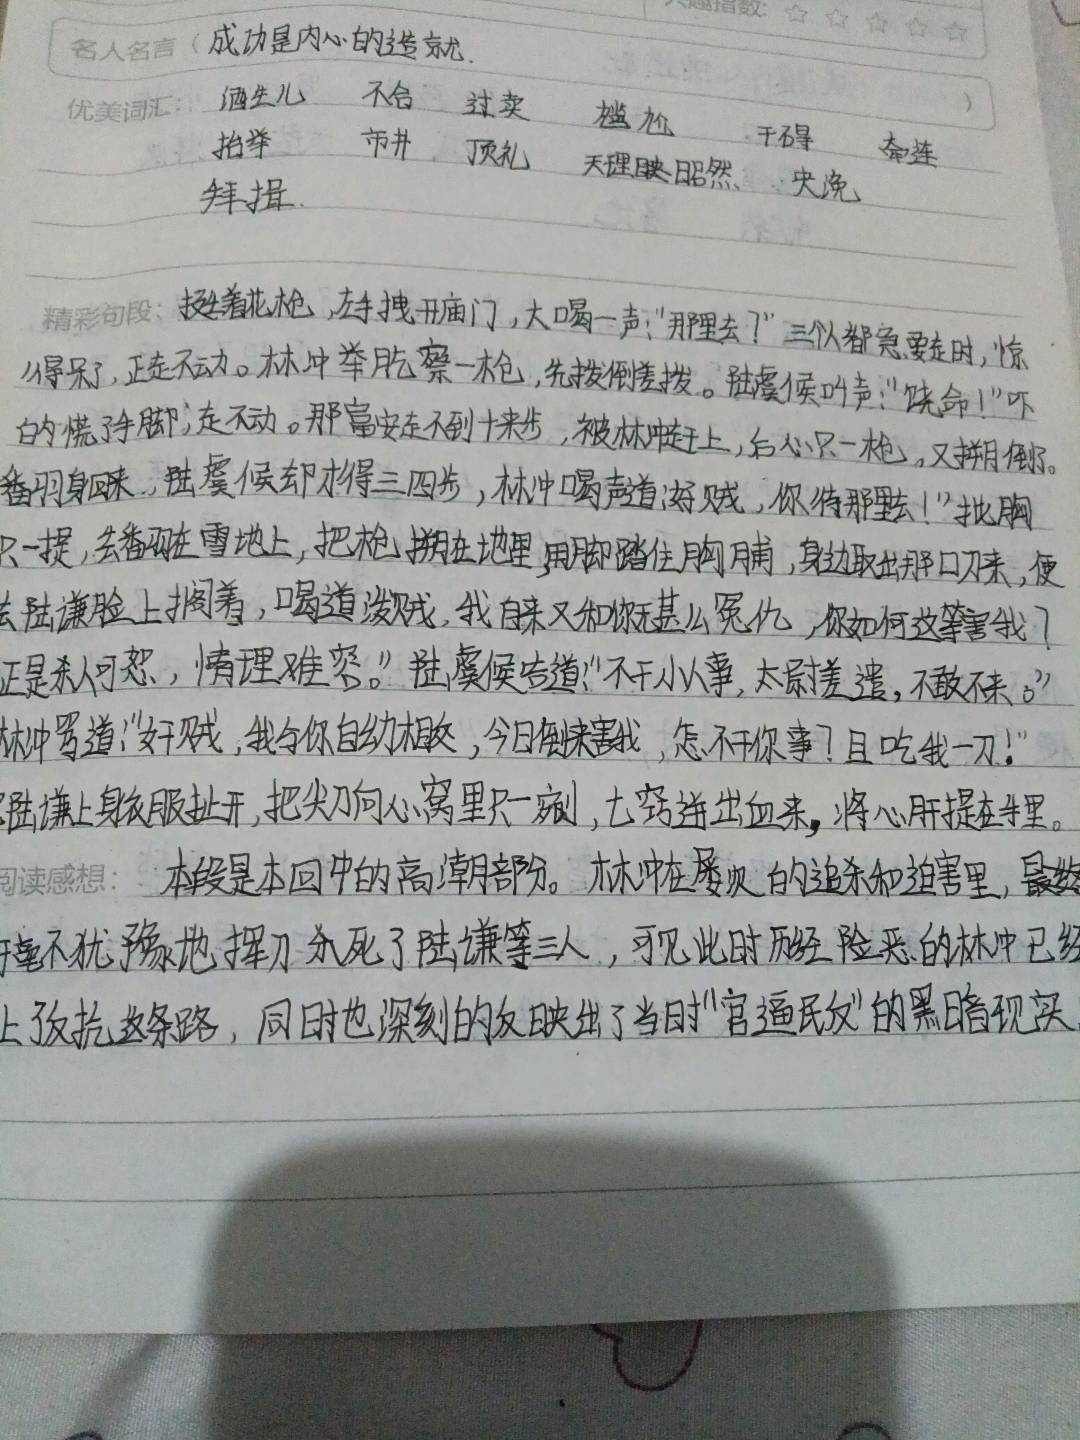 兴趣指数: ☆ ☆ ☆ ☆ ☆
名人名言（成功是内心的造就.
优美词汇: 酒生儿 不合 过卖 尴尬 干碍 牵连 ）
抬举 市井 顶礼 天理昭然 央浼
拜揖.
精彩句段: 挺着花枪,左手拽开庙门,大喝一声:"那里去?"三个人都急要走时,惊
得呆了,正走不动。林冲举手,察一枪,先拨倒差拨。陆虞候叫声:"饶命!"吓
的慌了手脚,走不动。那富安走不到十来步,被林冲赶上,后心只一枪,又搠倒了。
翻身回来,陆虞候却才得三四步,林冲喝声道:"好贼,你待那里去!"批胸
只一提,去翻在雪地上,把枪搠在地里,用脚踏住胸脯,身边取出那口刀来,便
去陆谦脸上搁着,喝道:"泼贼,我自来又和你无甚么冤仇,你如何这等害我?
正是杀人可恕,情理难容。"陆虞候告道:"不干小人事,太尉差遣,不敢不来。"
林冲骂道:"奸贼,我与你自幼相交,今日倒来害我,怎不干你事?且吃我一刀!"
陆谦上身衣服扯开,把尖刀向心窝里只一剜,七窍迸出血来,将心肝提在手里。
阅读感想: 本段是本回中的高潮部份。林冲在屡次的追杀和迫害里,最终
毫不犹豫地挥刀杀死了陆谦等三人,可见此时历经险恶的林冲已经
上了反抗这条路,同时也深刻的反映出了当时"官逼民反"的黑暗现实